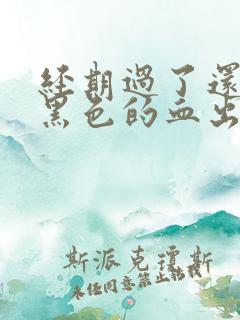 經期過了還
黑色的血出
斯派克瓊斯
未任同意禁止轉載